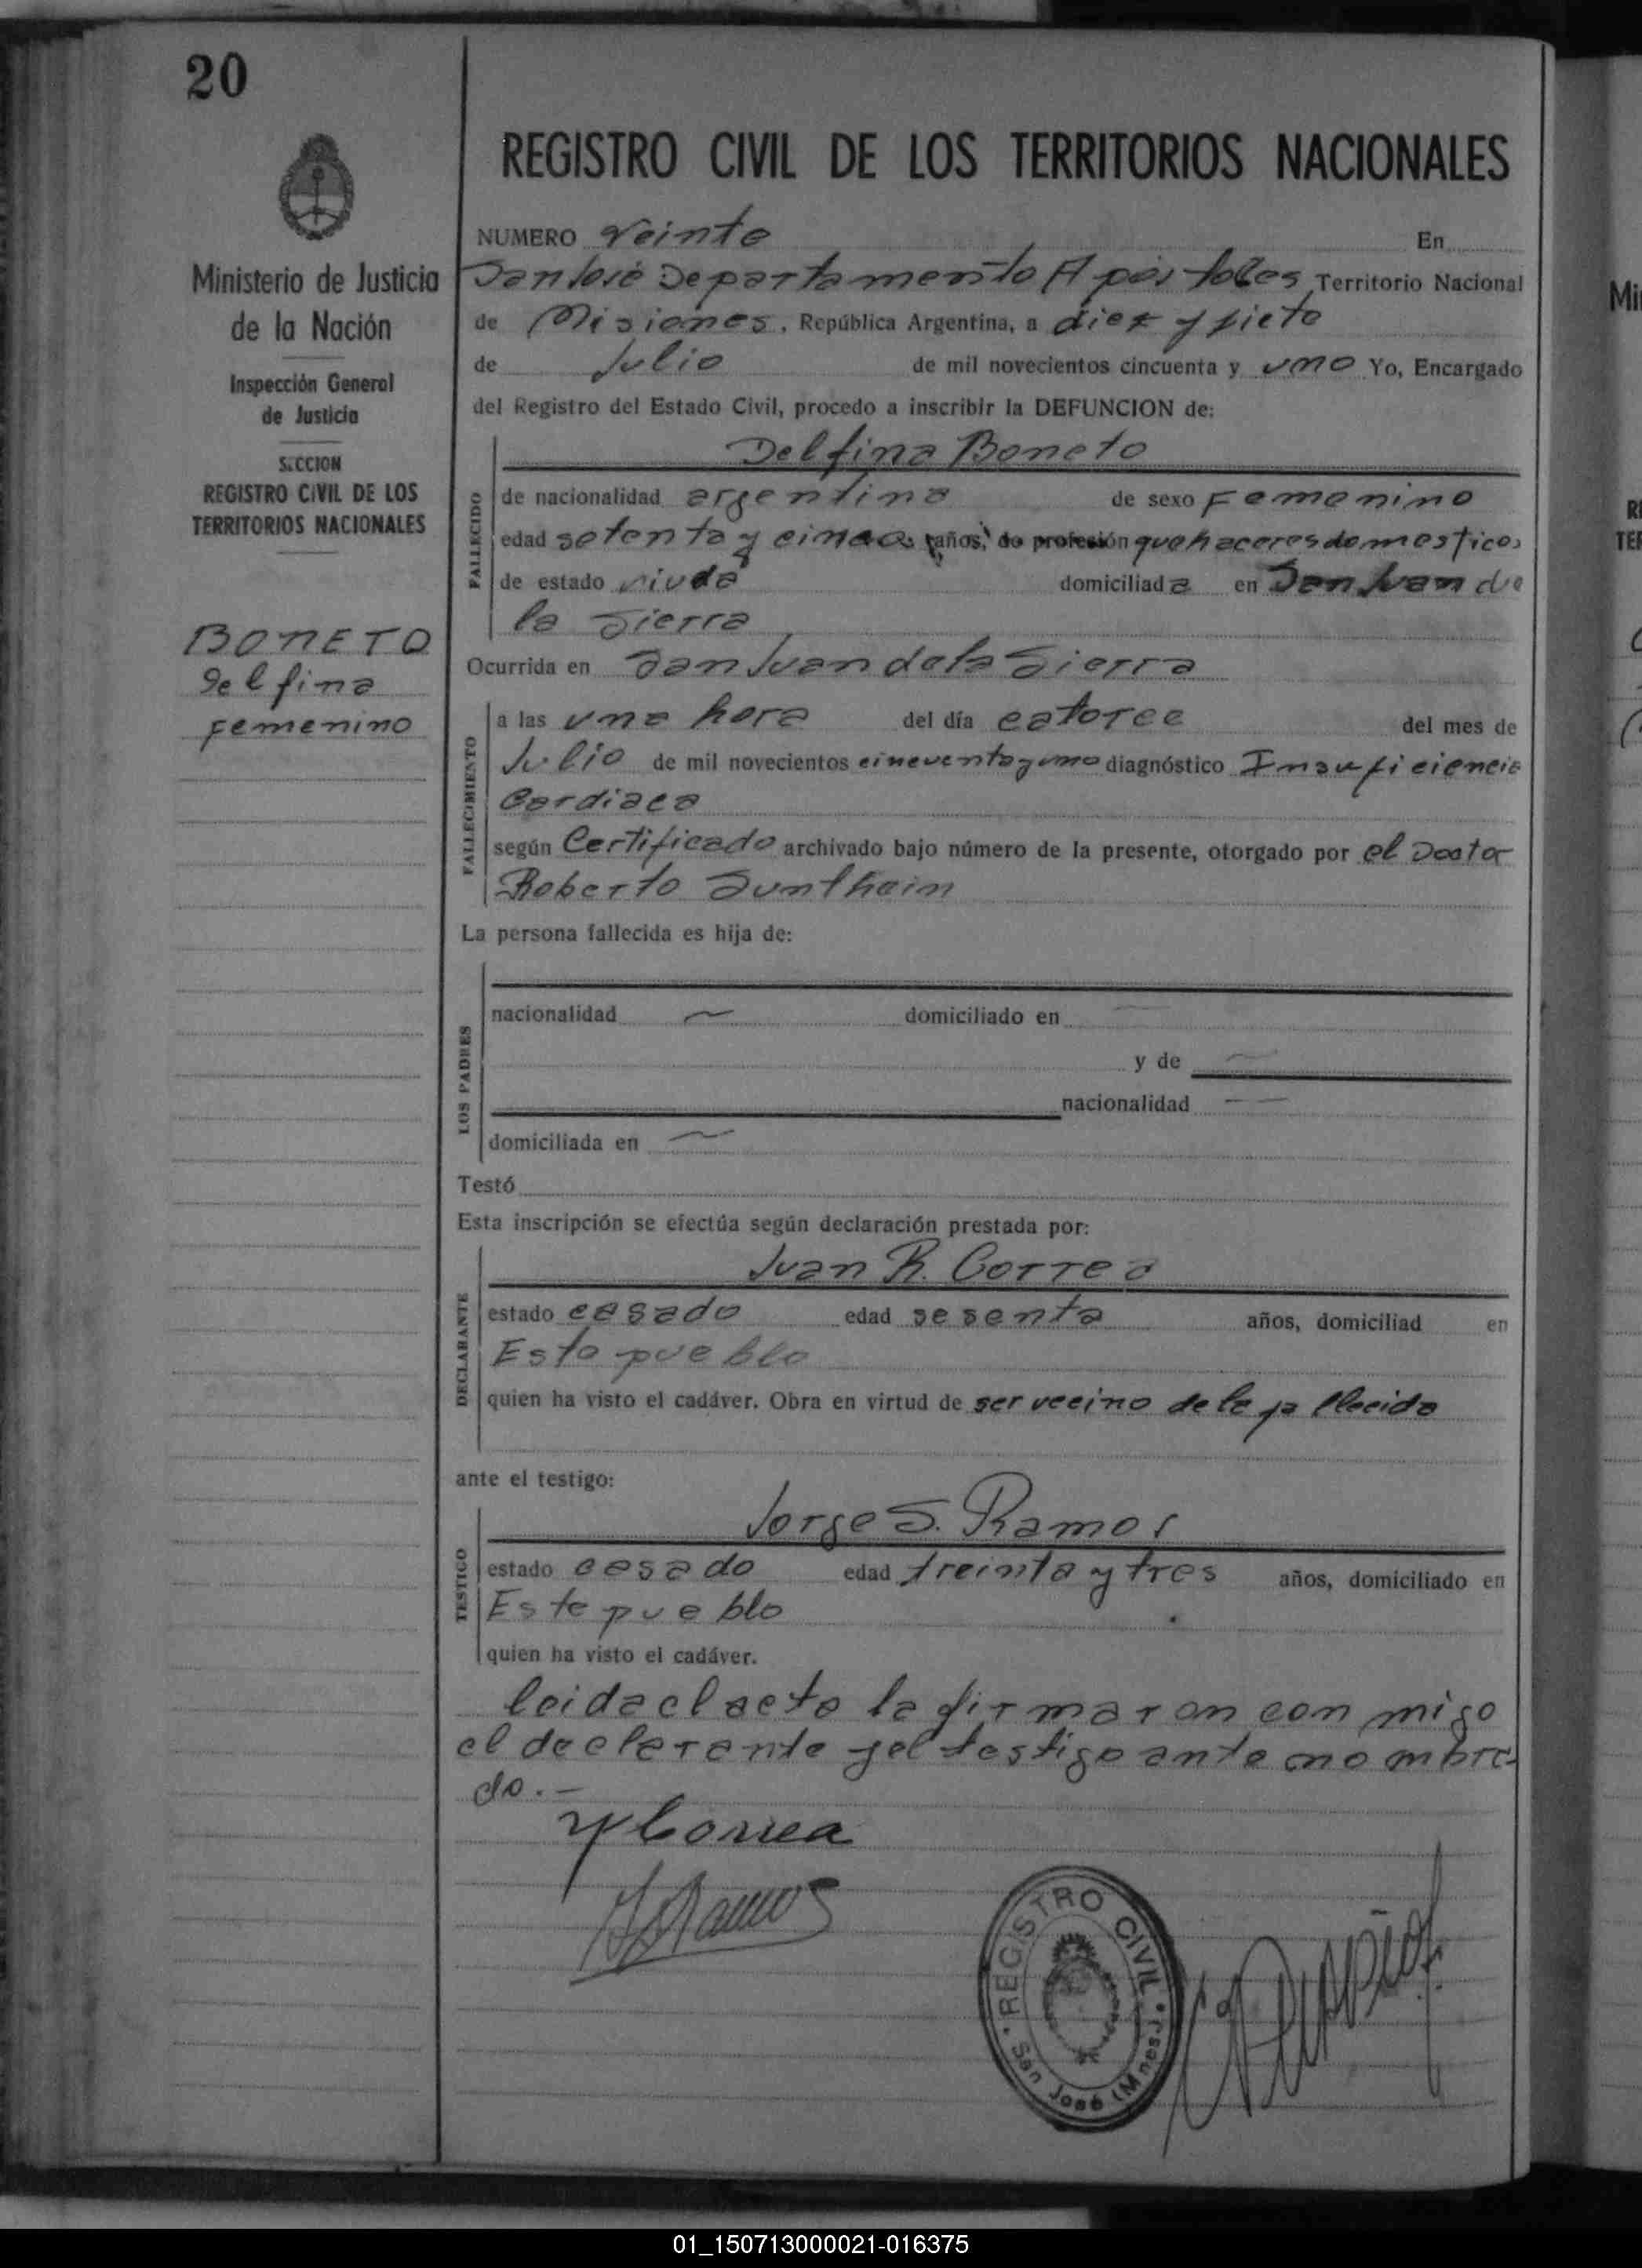 20
REGISTRO CIVIL DE LOS TERRITORIOS NACIONALES
Ministerio de Justicia
de la Nación
Inspección General
de Justicia
SECCION
REGISTRO CIVIL DE LOS
TERRITORIOS NACIONALES
BONETO
Delfina
Femenino
NUMERO Veinte En
San José Departamento Apóstoles Territorio Nacional
de Misiones, República Argentina, a diez y siete
de Julio de mil novecientos cincuenta y uno Yo, Encargado
del Registro del Estado Civil, procedo a inscribir la DEFUNCION de:
Delfina Boneto
FALLECIDO
de nacionalidad argentina de sexo Femenino
edad setenta y cinco años, de profesión quehaceres domesticos
de estado viuda domiciliada en San Juan de
la Sierra
Ocurrida en San Juan de la Sierra
FALLECIMIENTO
a las una hora del día catorce del mes de
Julio de mil novecientos cincuenta y uno diagnóstico Insuficiencia
Cardiaca
según Certificado archivado bajo número de la presente, otorgado por el Doctor
Roberto Suntheim
La persona fallecida es hija de:
LOS PADRES
nacionalidad — domiciliado en —
y de —
nacionalidad — —
domiciliada en —
Testó
Esta inscripción se efectúa según declaración prestada por:
Juan R. Correa
DECLARANTE
estado casado edad sesenta años, domiciliad en
Este pueblo
quien ha visto el cadáver. Obra en virtud de ser vecino de la fallecida
ante el testigo:
Jorge S. Ramos
TESTIGO
estado casado edad treinta y tres años, domiciliado en
Este pueblo
quien ha visto el cadáver.
leida el acta la firmaron con migo
el declarante y el testigo ante nombra-
do.-
Correa
Ramos
REGISTRO CIVIL
San José (Mnes.)
01_150713000021-016375